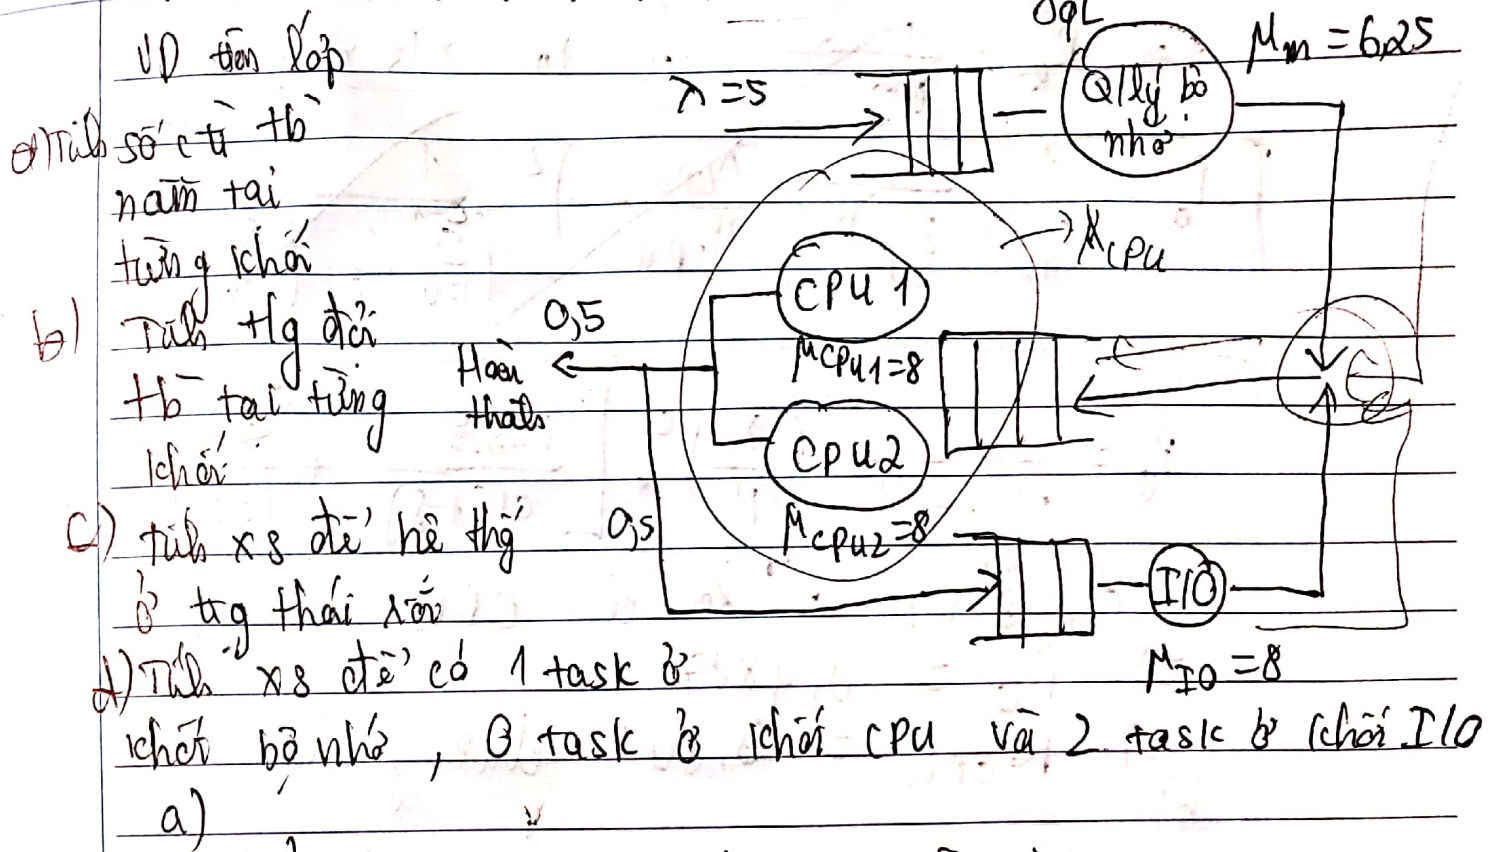 VD trên lớp
a) Tính số ctr tb
nằm tại
từng khối
b) Tính tg đợi
tb tại từng
khối
c) tính xs để hệ thg
ở trg thái xốc
d) Tính xs để có 1 task ở
khối bộ nhớ, 0 task ở khối CPU và 2 task ở khối I/O
a)
λ = 5
Q/lý bộ
nhớ
μm = 6,25
μCPU
CPU 1
μCPU1 = 8
CPU2
μCPU2 = 8
0,5
Hoàn
thành
0,5
I/O
μIO = 8